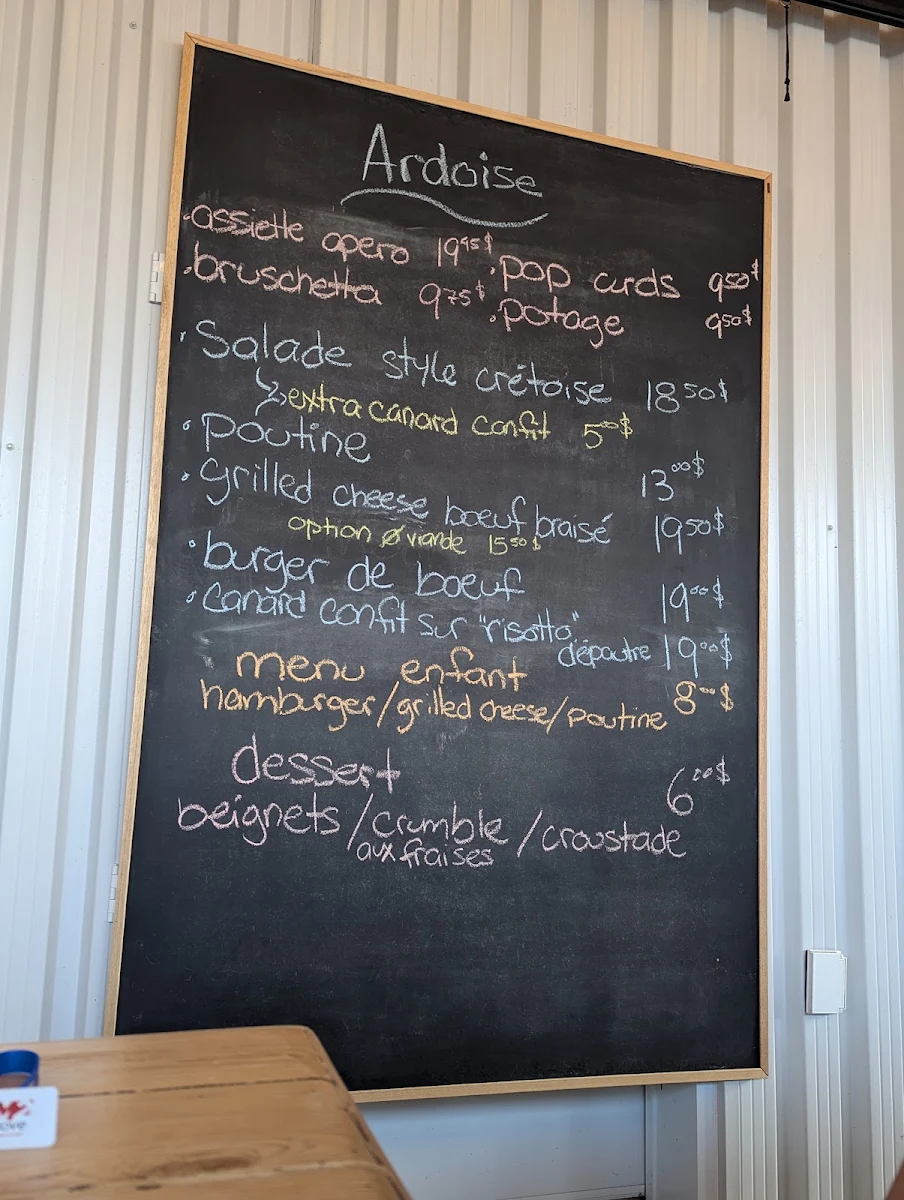 Ardoise
•assiette apero 19⁹⁵$
•pop curds 9⁵⁰$
•bruschetta 9⁷⁵$
•potage 9⁵⁰$
•Salade style crétoise 18⁵⁰$
extra canard confit 5⁰⁰$
•Poutine 13⁰⁰$
•grilled cheese boeuf braisé 19⁵⁰$
option ø viande 15⁵⁰$
•burger de boeuf 19⁰⁰$
•canard confit sur "risotto"
d'épautre 19⁰⁰$
menu enfant 8⁰⁰$
hamburger/grilled cheese/poutine
dessert 6⁰⁰$
beignets/crumble/croustade
aux fraises